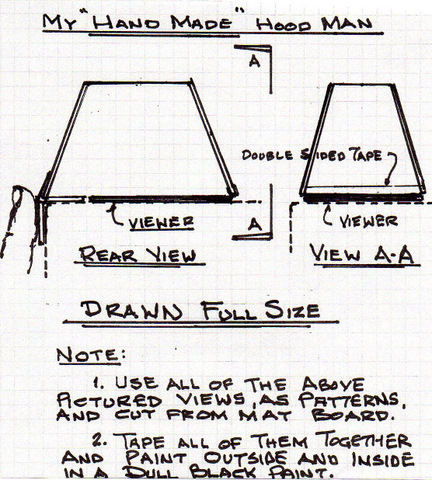 MY "HAND MADE" HOOD MAN
A
DOUBLE SIDED TAPE
A
VIEWER
VIEWER
REAR VIEW
VIEW A-A
DRAWN FULL SIZE
NOTE:
1. USE ALL OF THE ABOVE
PICTURED VIEWS, AS PATTERNS,
AND CUT FROM MAT BOARD.
2. TAPE ALL OF THEM TOGETHER
AND PAINT OUTSIDE AND INSIDE
IN A DULL BLACK PAINT.